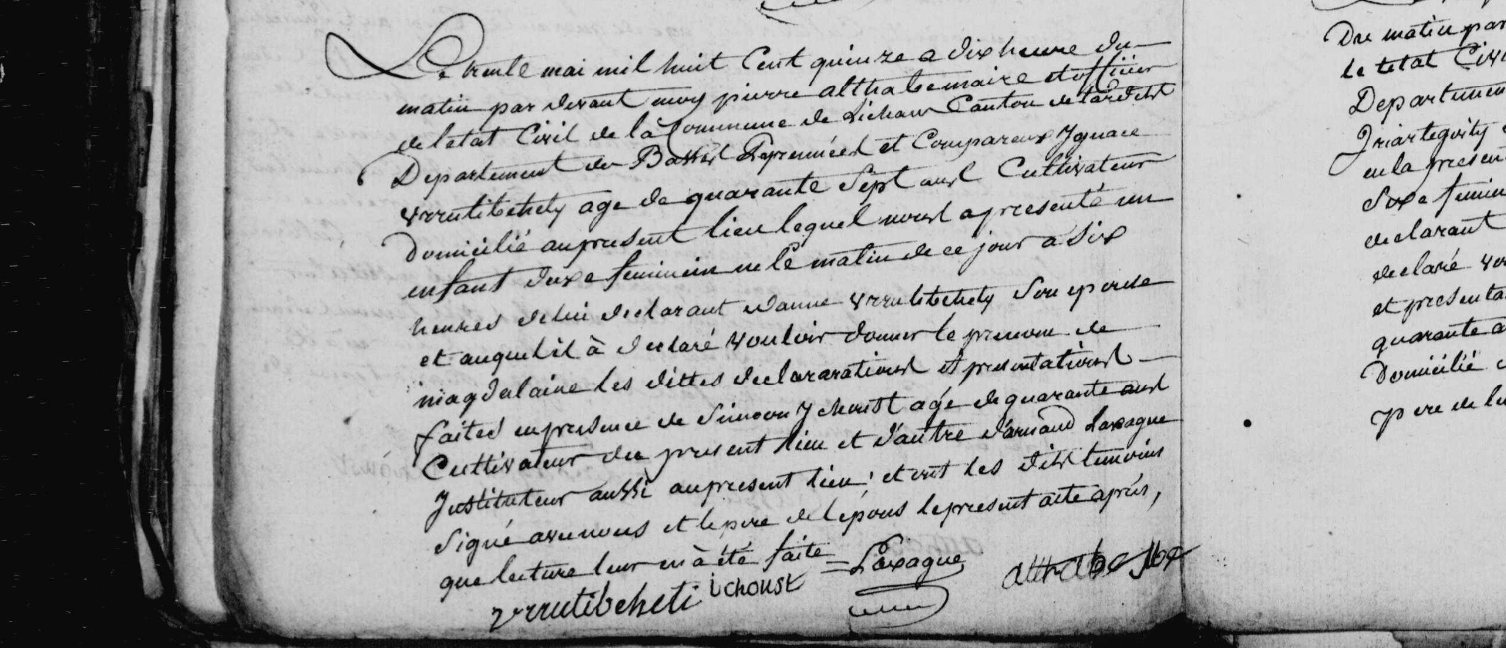 Le trente mai mil huit Cent quinze a dix heure du
matin par devant moy pierre althabe maire et officier
de letat Civil de la Commune de Lichans Canton de tardets
Departement des Basses Pyrennéés et Compareux Ygnace
urrutibehety age de quarante Sept ans Cultivateur
Domicilié au present lieu lequel nous a presenté un
enfant du sexe feminin ne le matin de ce jour a Six
heures de lui declarant et danne urrutibehety Son epouse
et auquel il à declaré vouloir donner le prenom de
magdalaine les dittes declararations et presentations
faites en presence de Simoon Ychoust age de quarante ans
Cultivateur du present lieu et d'autre d'arnaud Laxague
Instituteur aussi au present lieu, et ont les dits temoins
Signé avec nous et le pere de l'epous le present acte après,
que lecture leur en à été faite = Laxague
urrutibeheti ichoust althabe
Du matin par
le letat Civi
Departement
Iriartegoity
en la presen
Sexe femin
declarant
declaré vou
et presenta
quarante a
Domicilié
pere de le